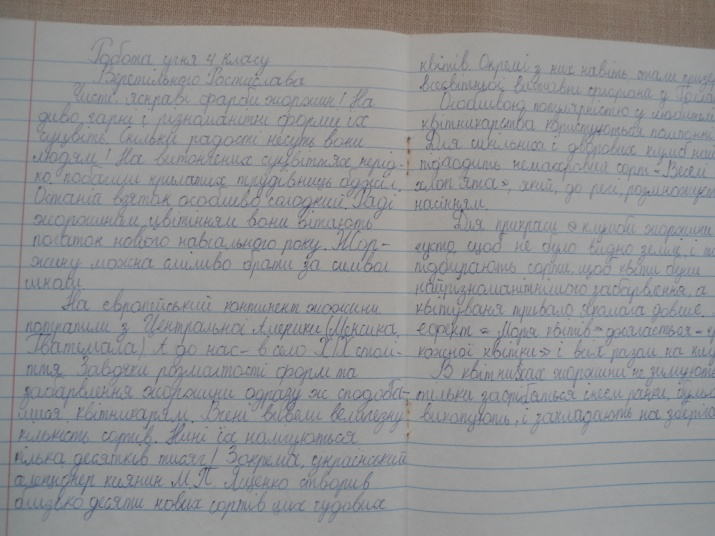 Робота учня 4 класу
Верстільного Ростислава
Чисті, яскраві фарби жоржин! На
диво гарні і різноманітні форми їх
суцвіть. Скільки радості несуть вони
людям! На витончених суцвіттях нерід-
ко побачиш крилатих трудівниць бджіл.
Останній взяток особливо солодкий. Раді
жоржинам, цвітінням вони вітають
початок нового навчального року. Жор-
жину можна сміливо брати за символ
школи
На європейський континент жоржини
потрапили з Центральної Америки (Мексика,
Гватемала) А до нас - в село XIX столі-
ття Завдяки розмаїтості форм та
забарвлення жоржини одразу ж сподоба-
лися квітникарям. Вчені вивели величезну
кількість сортів. Нині їх налічуються
кілька десятків тисяч! Зокрема, український
селекціонер киянин М.П. Яценко створив
близько десяти нових сортів цих чудових
квітів. Окремі з них навіть стали
всесвітньої виставки флорона у
Особливою популярністю у любителів
квітникарства користуються помпонні
Для шкільних і дворових клумб най
підходить немахровий сорт "Веселі
хлоп'ята", який, до речі, розмножують
насінням.
Для прикраси клумби жоржини
густо, щоб не було видно землі, і
підбирають сорти, щоб квіти були
найрізноманітнішого забарвлення, а
квітування тривало якомога довше.
ефект "Моря квітів" досягається
кожної квітки і всіх разом на
В квітниках жоржини не зимують
тільки заосібаться сіне рання,
викопують, і закладають на